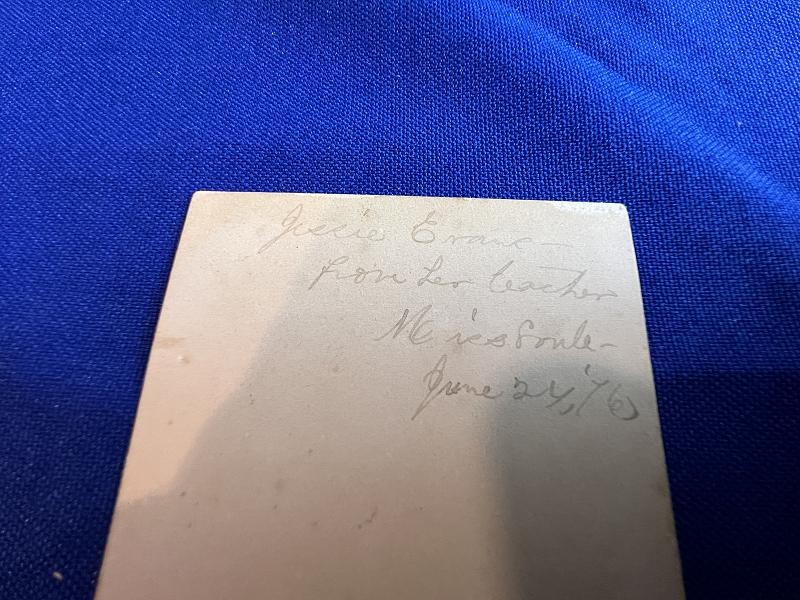 Jessie Evans –
from her teacher
Miss Soule –
June 24, '76